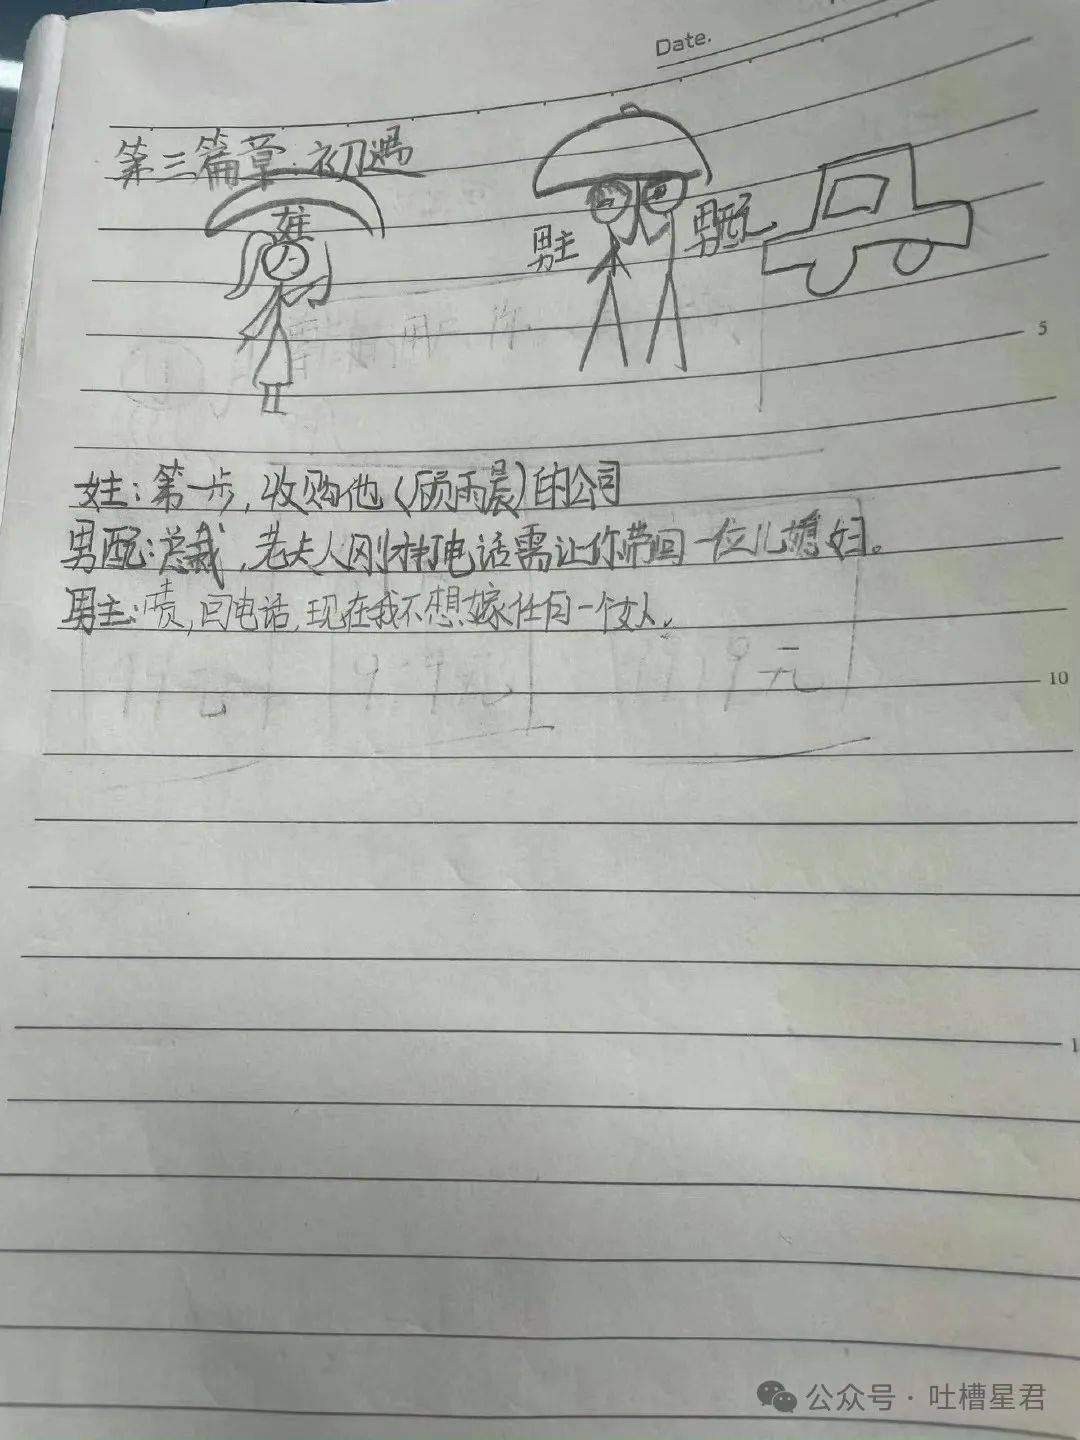 Date.
第三篇章:初遇
女主
男主
男配
5
女主:第一步,收购他(顾雨晨)的公司
男配:总裁,老夫人刚才打电话需让你带回一位儿媳妇。
男主:啧,回电话,现在我不想嫁任何一个女人。
10
公众号·吐槽星君